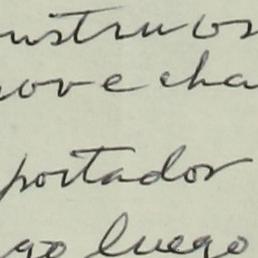 nstruos
ove cha
portador
go luego